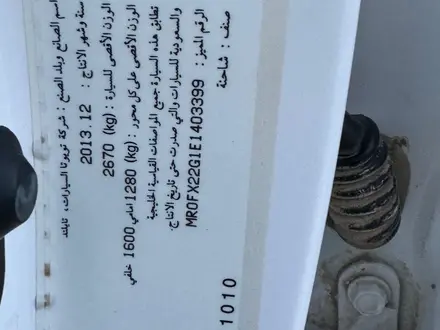 اسم الصانع وبلد الصنع : شركة تويوتا للسيارات، تايلند
سنة وشهر الانتاج : 2013.12
الوزن الأقصى للسيارة : (kg) 2670
الوزن الأقصى على كل محور : (kg) 1280 امامي 1600 خلفي
تطابق هذه السيارة جميع المواصفات القياسية الخليجية
والسعودية للسيارات والتي صدرت حتى تاريخ الانتاج.
الرقم المميز : MR0FX22G1E1403399
صنف : شاحنة
1010